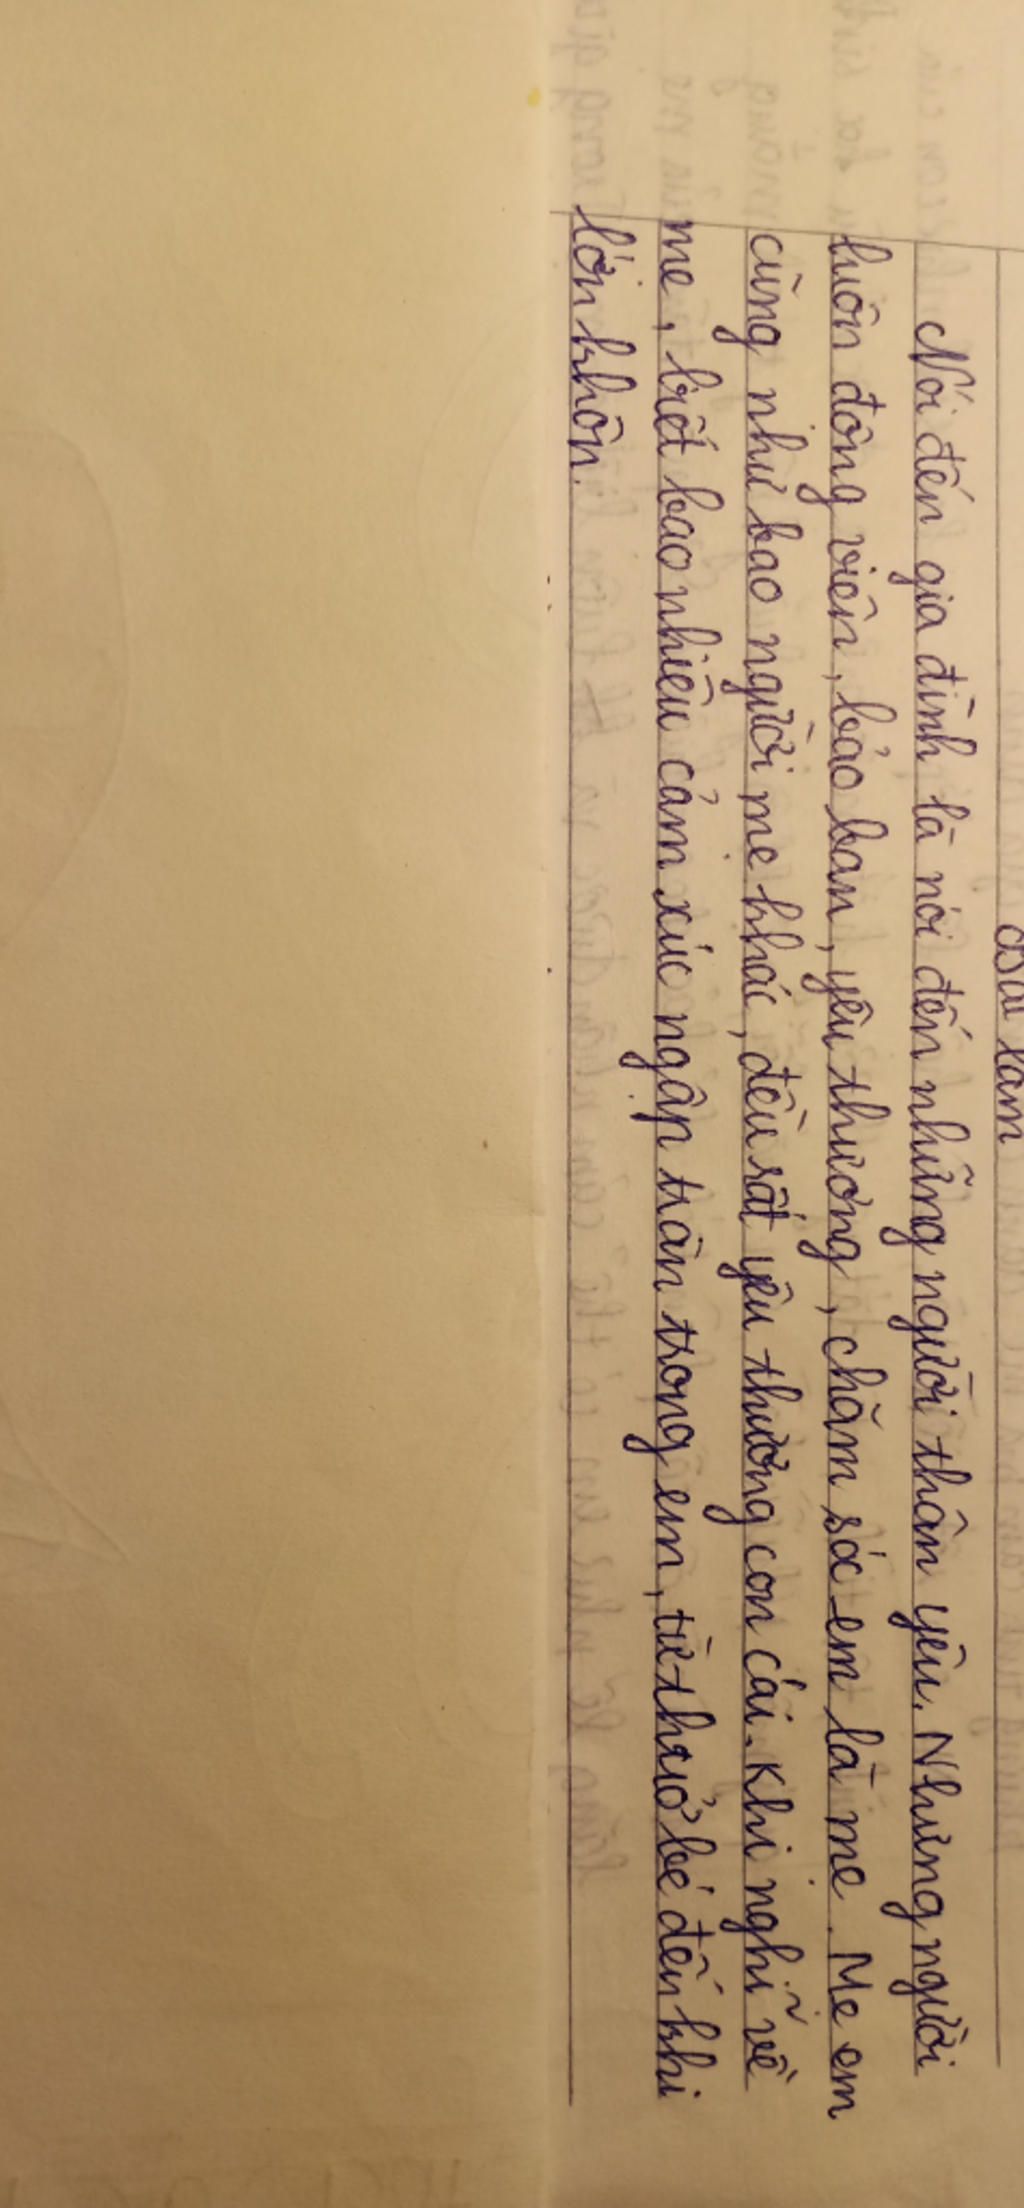 Bài làm
Nói đến gia đình là nói đến những người thân yêu. Nhưng người
luôn động viên, bảo ban, yêu thương, chăm sóc em là mẹ. Mẹ em
cũng như bao người mẹ khác, đều rất yêu thương con cái. Khi nghĩ về
mẹ, biết bao nhiêu cảm xúc ngập tràn trong em, từ thuở bé đến khi
lớn khôn.